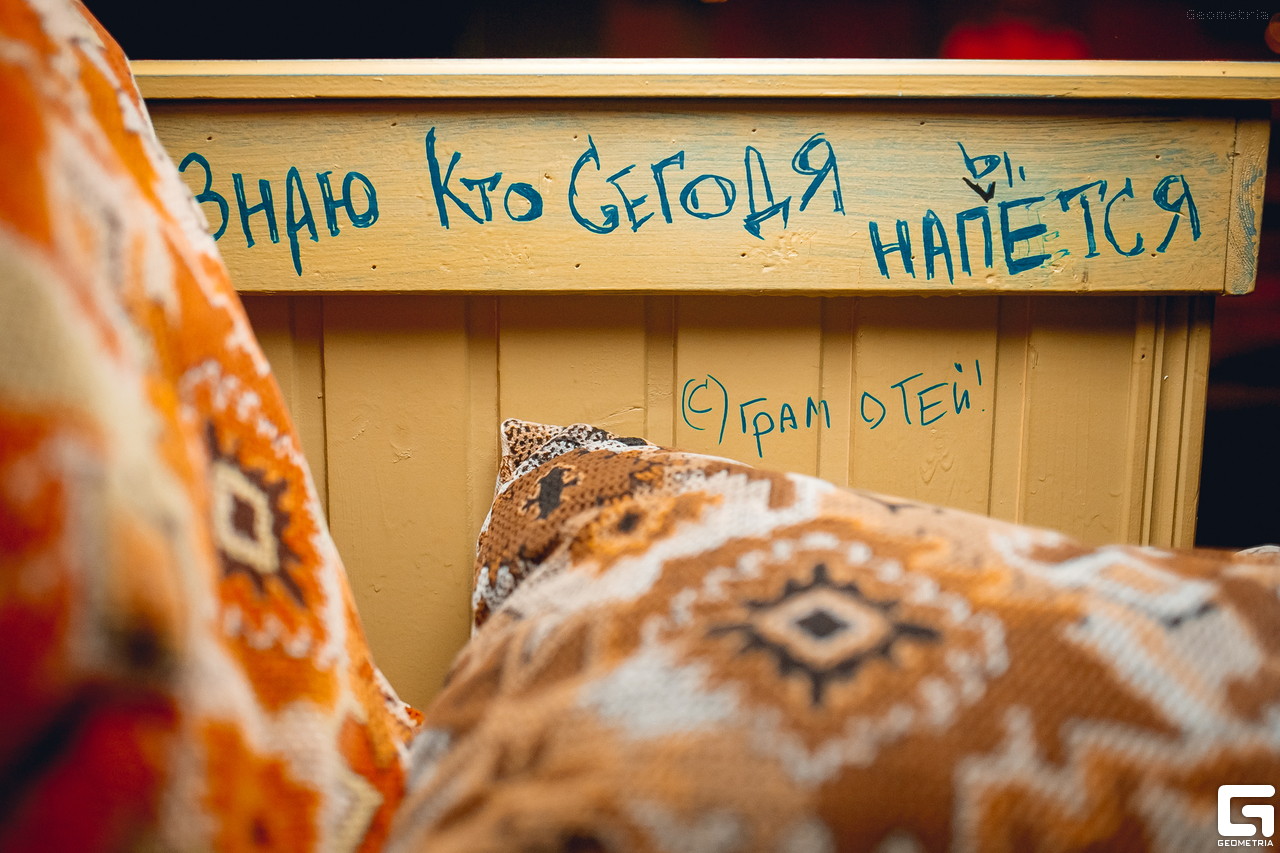 Geometria
ЗНАЮ КТО СЕГОДЯ НАПЕТСЯ
Ы
(С) ГРАМ ОТЕЙ!
GEOMETRIA